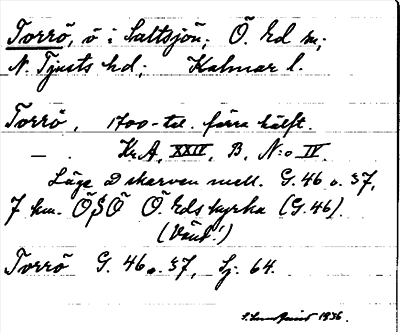 Torrö, ö i Saltsjön; Ö. Ed sn;
N. Tjusts hd; Kalmar l.
Torrö, 1700-tal. förra hälft.
— KrA, XXIV, B, N:o IV.
Läge å skärven mell. G. 46 o. 37,
7 km. ÖSÖ Ö. Eds kyrka (G. 46).
(Vänt!)
Torrö G. 46 o. 37, Sj. 64.
1936.